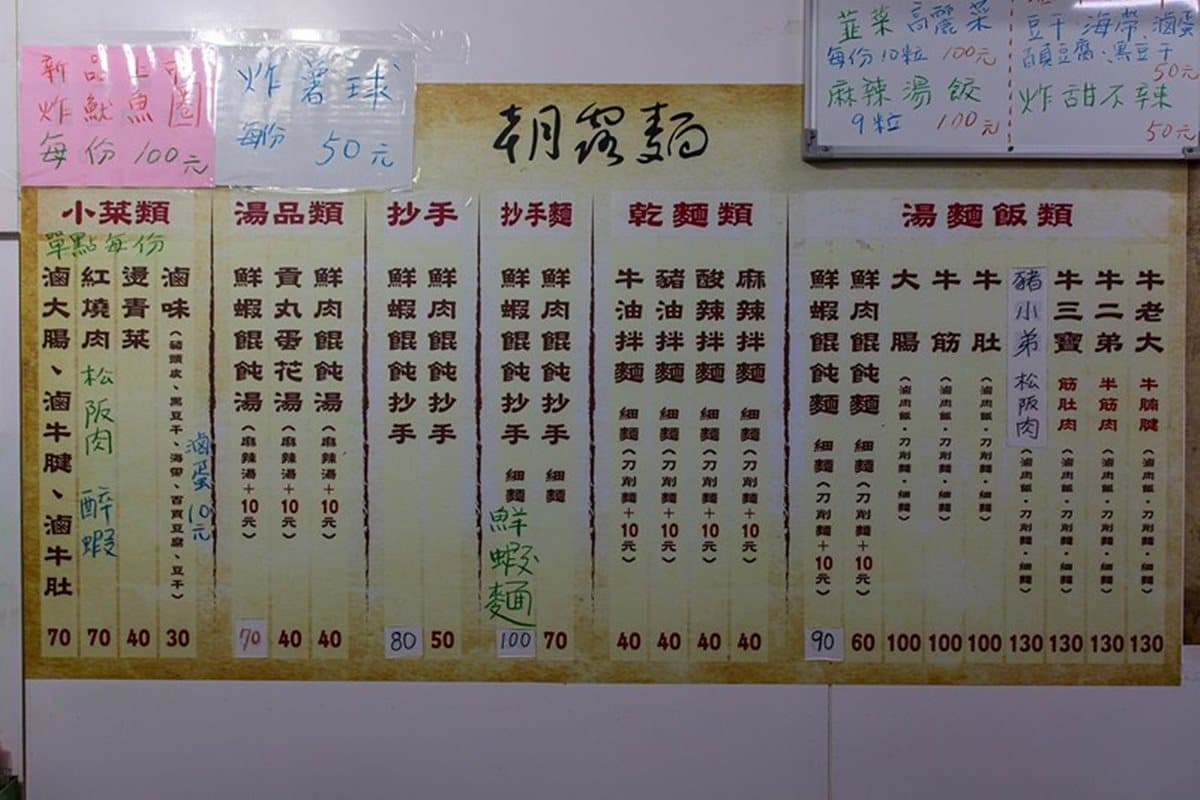 新品上市
炸魷魚圈
每份100元
炸薯球
每份 50元
朝露麵
韭菜 高麗菜
每份10粒 100元
麻辣湯餃
9粒 100元
豆干 海帶、滷蛋
百頁豆腐、黑豆干
50元
炸甜不辣
50元
小菜類
單點每份
滷大腸、滷牛腱、滷牛肚 70
紅燒肉 松阪肉 醉蝦 70
燙青菜 40
滷味(豬頭皮、黑豆干、海帶、百頁豆腐、豆干) 30
滷蛋10元
湯品類
鮮蝦餛飩湯(麻辣湯+10元) 70
貢丸蛋花湯(麻辣湯+10元) 40
鮮肉餛飩湯(麻辣湯+10元) 40
抄手
鮮蝦餛飩抄手 80
鮮肉餛飩抄手 50
抄手麵
鮮蝦餛飩抄手 細麵 鮮蝦麵 100
鮮肉餛飩抄手 細麵 70
乾麵類
牛油拌麵 細麵(刀削麵+10元) 40
豬油拌麵 細麵(刀削麵+10元) 40
酸辣拌麵 細麵(刀削麵+10元) 40
麻辣拌麵 細麵(刀削麵+10元) 40
湯麵飯類
鮮蝦餛飩麵 細麵(刀削麵+10元) 90
鮮肉餛飩麵 細麵(刀削麵+10元) 60
大腸(滷肉飯·刀削麵·細麵) 100
牛筋(滷肉飯·刀削麵·細麵) 100
牛肚(滷肉飯·刀削麵·細麵) 100
豬小弟 松阪肉(滷肉飯·刀削麵·細麵) 130
牛三寶 筋肚肉(滷肉飯·刀削麵·細麵) 130
牛二弟 半筋肉(滷肉飯·刀削麵·細麵) 130
牛老大 牛腩腱(滷肉飯·刀削麵·細麵) 130